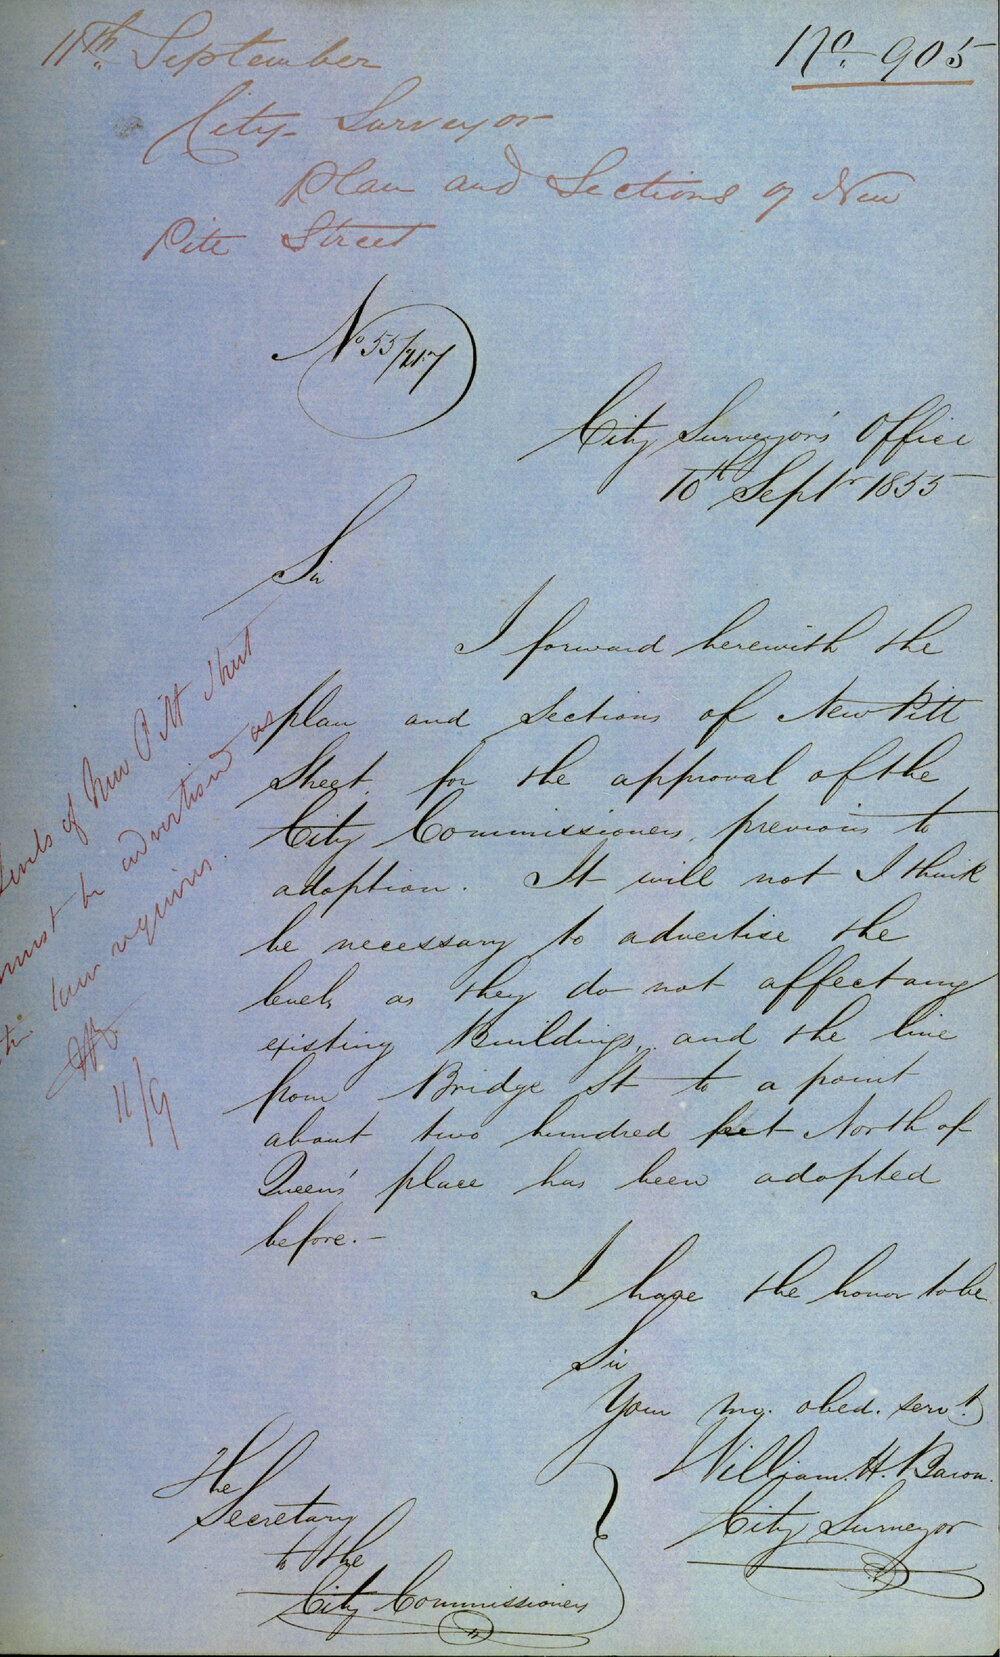 11th. September
No. 905
City Surveyor
Plan and Sections of New
Pitt Street
No 55/217
City Surveyor's Office
10th Septr 1855
Sir
I forward herewith the
plan and sections of New Pitt
Street for the approval of the
City Commissioners, previous to
adoption. It will not I think
be necessary to advertise the
levels as they do not affect any
existing Buildings, and the line
from Bridge St to a point
about two hundred feet North of
Queen's place has been adopted
before. -
I have the honor to be
Sir
Your mo. obed. servt.
William. H. Baron.
City Surveyor
The
Secretary
to the
City Commissioners
Levels of New Pitt Street
must be advertised as
the law requires.
11/9